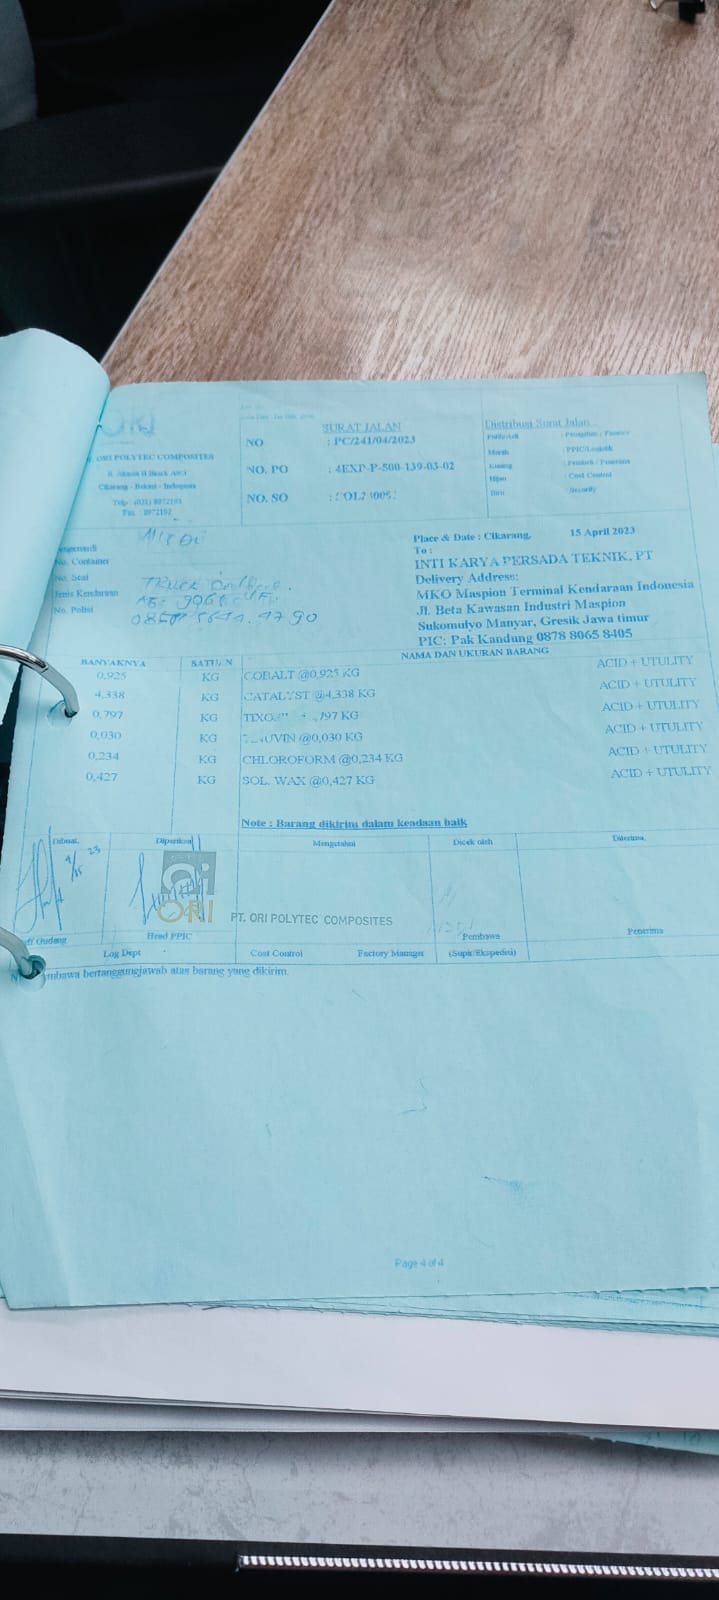 ORI
ORI POLYTEC COMPOSITES
Cikarang - Bekasi - Indonesia
Telp : (021) 8972193
Fax : 8972192
SURAT JALAN
NO : PC/241/04/2023
NO. PO : 4EXP-P-500-139-03-02
NO. SO :
Distribusi Surat Jalan
Putih/Asli : Penagihan / Finance
Merah : PPIC/Logistik
Kuning : Pembeli / Penerima
Hijau : Cost Control
Biru : Security
No. Container
No. Seal
Jenis Kendaraan TRUCK
No. Polisi
Place & Date : Cikarang, 15 April 2023
To :
INTI KARYA PERSADA TEKNIK, PT
Delivery Address:
MKO Maspion Terminal Kendaraan Indonesia
Jl. Beta Kawasan Industri Maspion
Sukomulyo Manyar, Gresik Jawa timur
PIC: Pak Kandung 0878 8065 8405
BANYAKNYA SATUAN NAMA DAN UKURAN BARANG
0,925 KG COBALT @0,925 KG ACID + UTULITY
4,338 KG CATALYST @4,338 KG ACID + UTULITY
0,797 KG ACID + UTULITY
0,030 KG @0,030 KG ACID + UTULITY
0,234 KG CHLOROFORM @0,234 KG ACID + UTULITY
0,427 KG SOL. WAX @0,427 KG ACID + UTULITY
Note : Barang dikirim dalam keadaan baik
Dibuat, Diperiksa Mengetahui Dicek oleh Diterima,
ORI PT. ORI POLYTEC COMPOSITES
Gudang Head PPIC Pembawa Penerima
Log Dept Cost Control Factory Manager (Supir/Ekspedisi)
bertanggungjawab atas barang yang dikirim.
Page 4 of 4